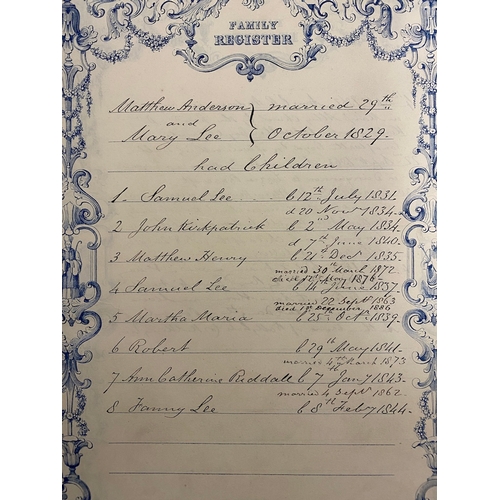 FAMILY
REGISTER
Matthew Anderson } married 29th
and
Mary Lee } October 1829.
had Children
1 - Samuel Lee b 12th July 1831.
d 20 Novr 1834.
2 John Kirkpatrick b 2nd May 1834.
d 7th June 1840.
3 Matthew Henry b 21st Decr 1835.
married 30th March 1872
died 12th May 1876.
4 Samuel Lee b 14th June 1837.
married 22 Septr 1863
Died 1st December 1886
5 Martha Maria b 25th Octr 1839.
6 Robert b 29th May 1841.
married 4th March 1873
7 Ann Catherine Riddall b 7th Jany 1843.
married 4 Septr 1862.
8 Fanny Lee b 8th Feby 1844.